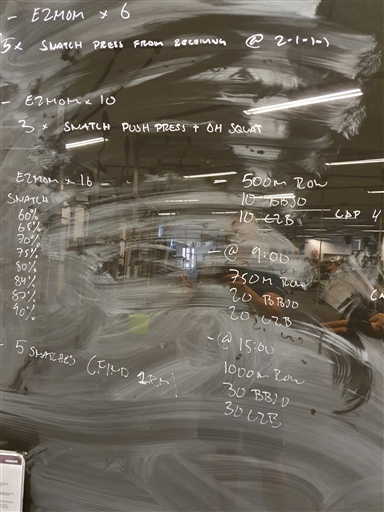 - E2MOM x 6
5x SNATCH PRESS FROM RECEIVING @ 2-1-1-1
- E2MOM x 10
3 x SNATCH PUSH PRESS + OH SQUAT
E2MOM x 16 -
SNATCH
60%
65%
70%
75%
80%
84%
87%
90%
- 5 SNATCHES (FIND 1RM)
- 500M ROW
10 BBJO
10 C2B CAP 4
- @ 9:00
750M ROW
20 BBJO
20 C2B
- @ 15:00
1000M ROW
30 BBJO
30 C2B